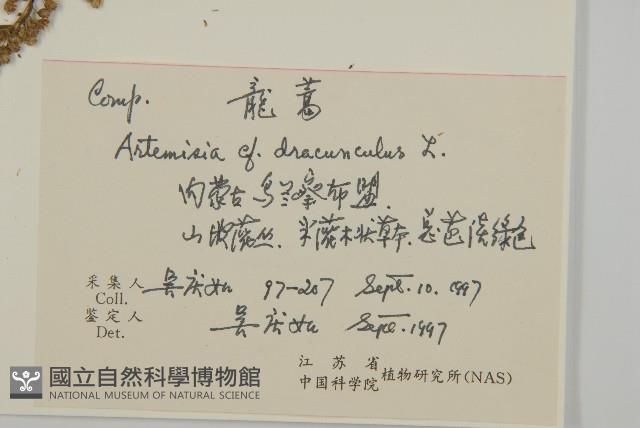 Comp. 龍蒿
Artemisia cf. dracunculus L.
内蒙古 乌兰察布盟.
山坡灌丛. 半灌木状草本. 淡绿色
采集人 Coll. 吴庆如 97-207 Sept. 10. 1997
鉴定人 Det. 吴庆如 Sept. 1997
江苏省
中国科学院 植物研究所(NAS)
國立自然科學博物館
NATIONAL MUSEUM OF NATURAL SCIENCE